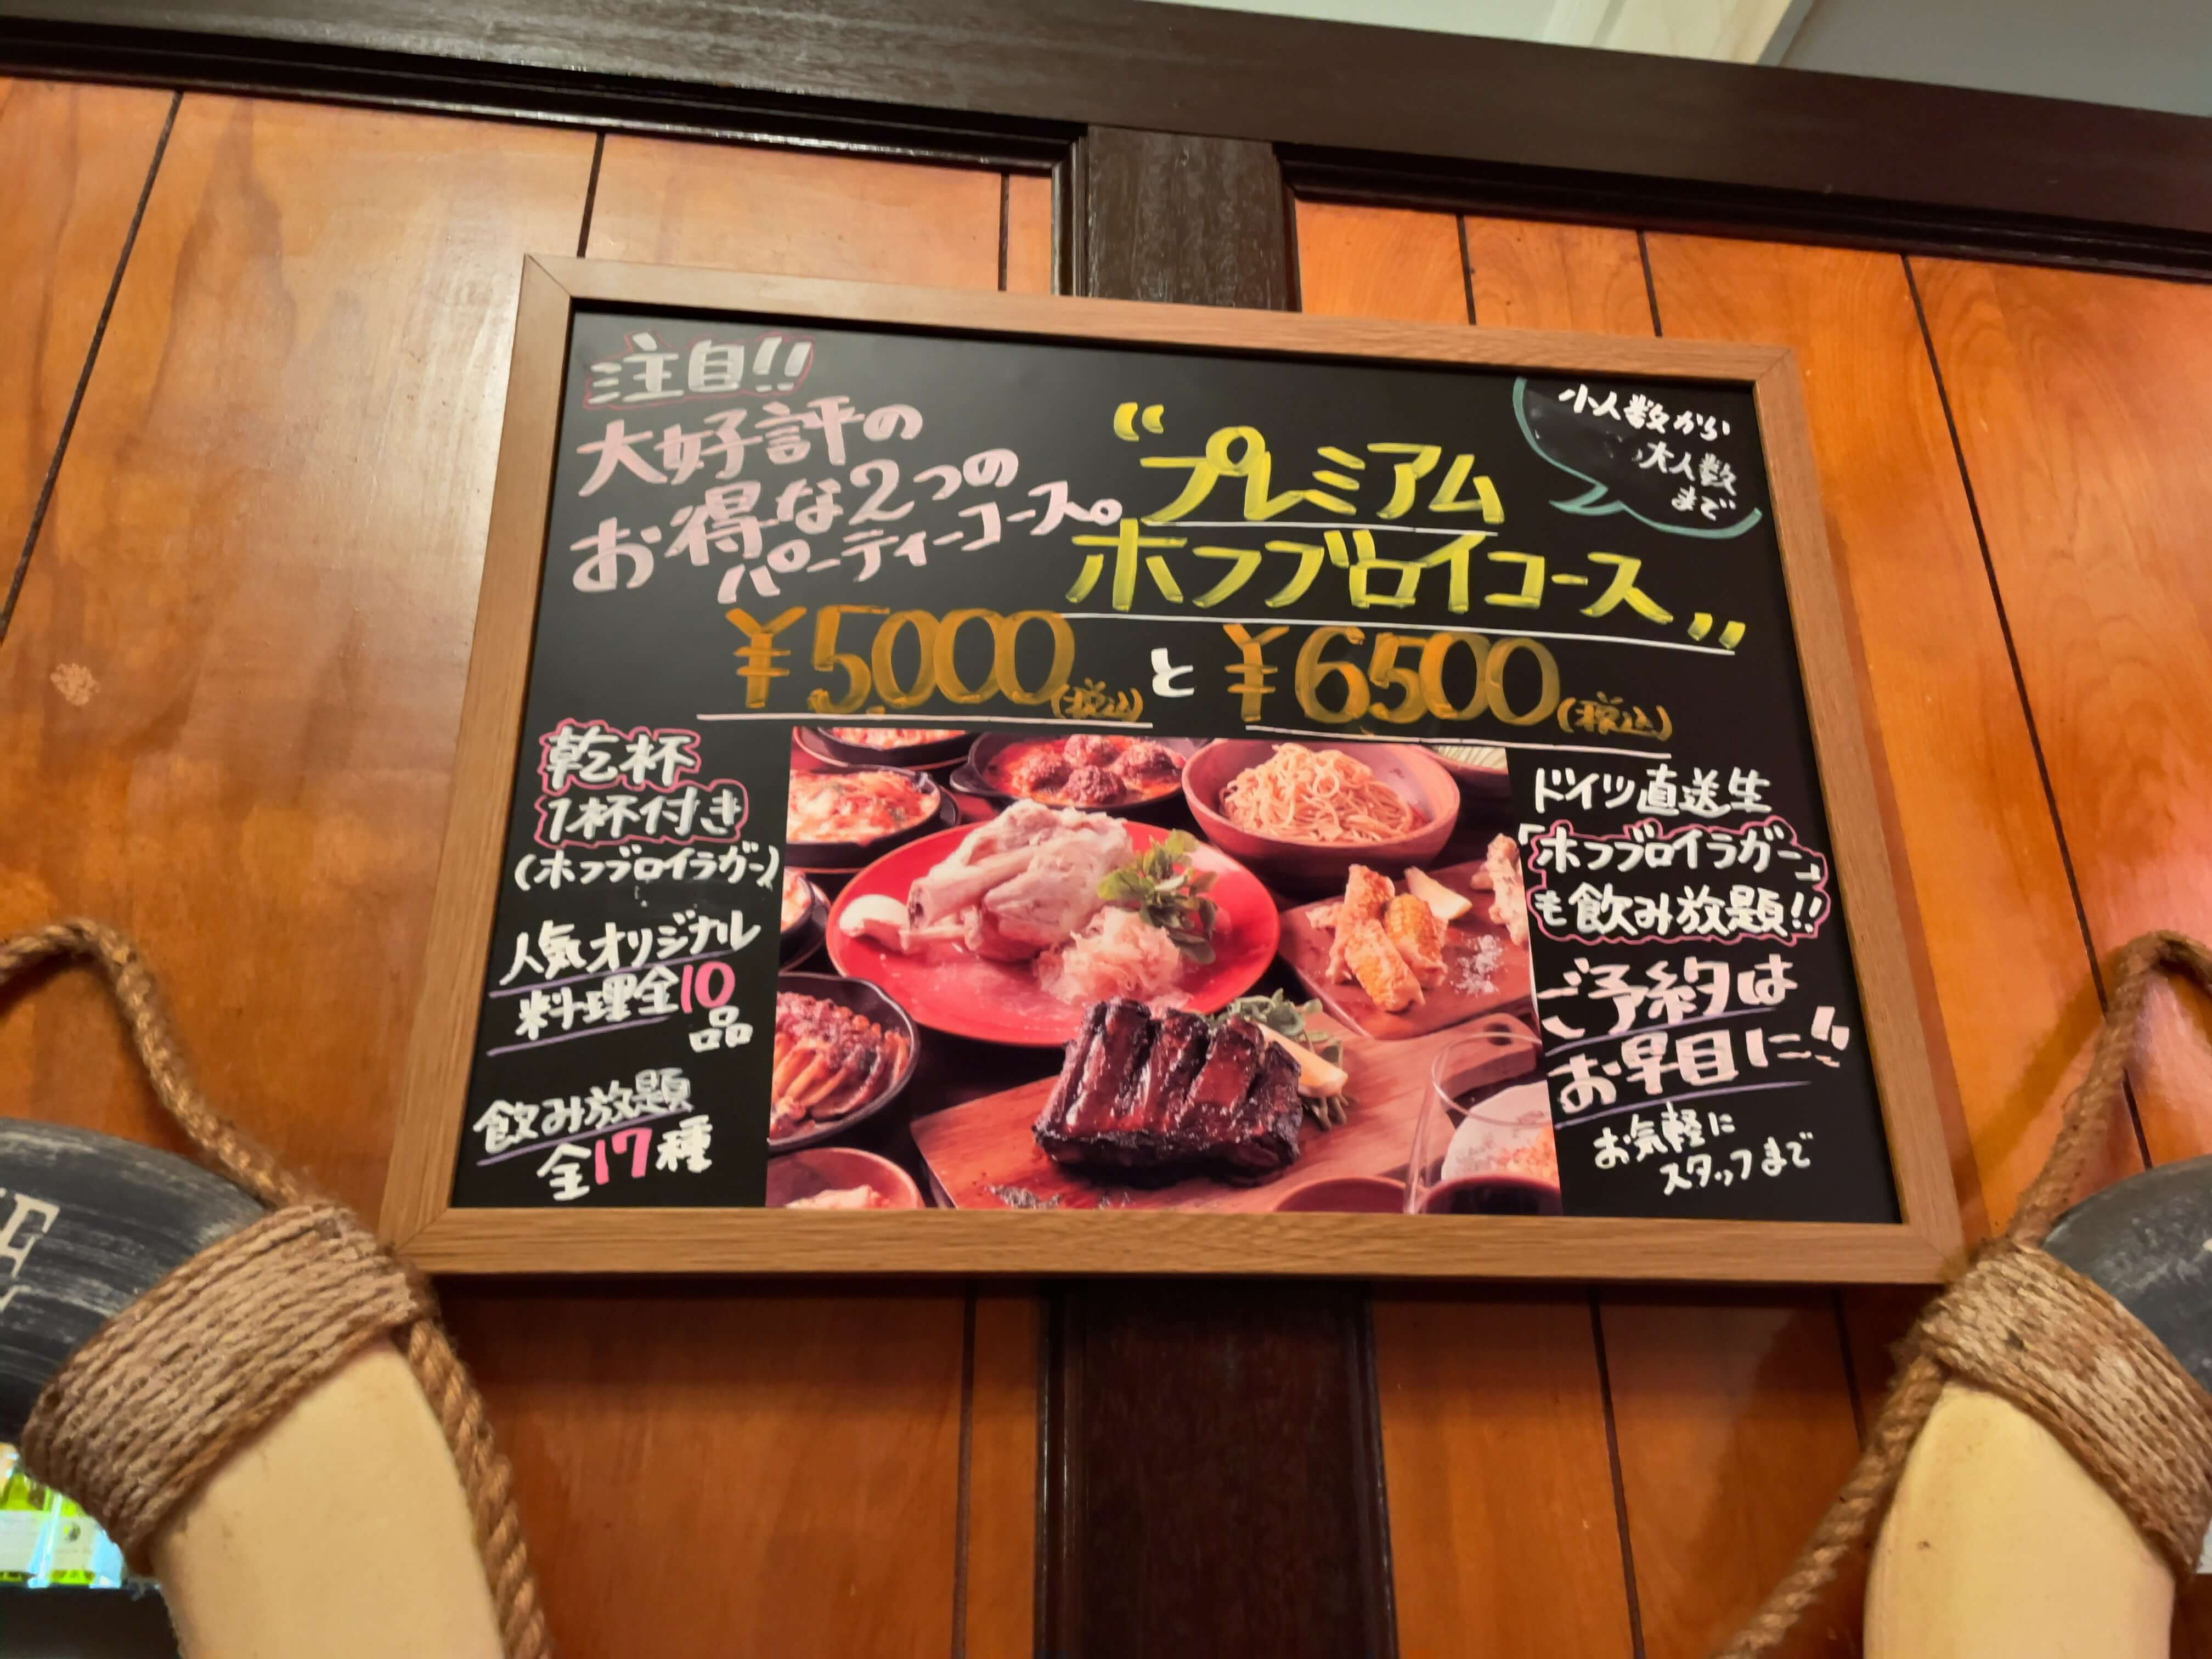 注目!!
大好評の
お得な2つの
パーティーコース。
小人数から
大人数
まで
“プレミアム
ホフブロイコース”
¥5,000(税込)と¥6500(税込)
乾杯
1杯付き
(ホフブロイラガー)
人気オリジナル
料理全10
品
飲み放題
全17種
ドイツ直送生
「ホフブロイラガー」
も飲み放題!!
ご予約は
お早目に!!
お気軽に
スタッフまで